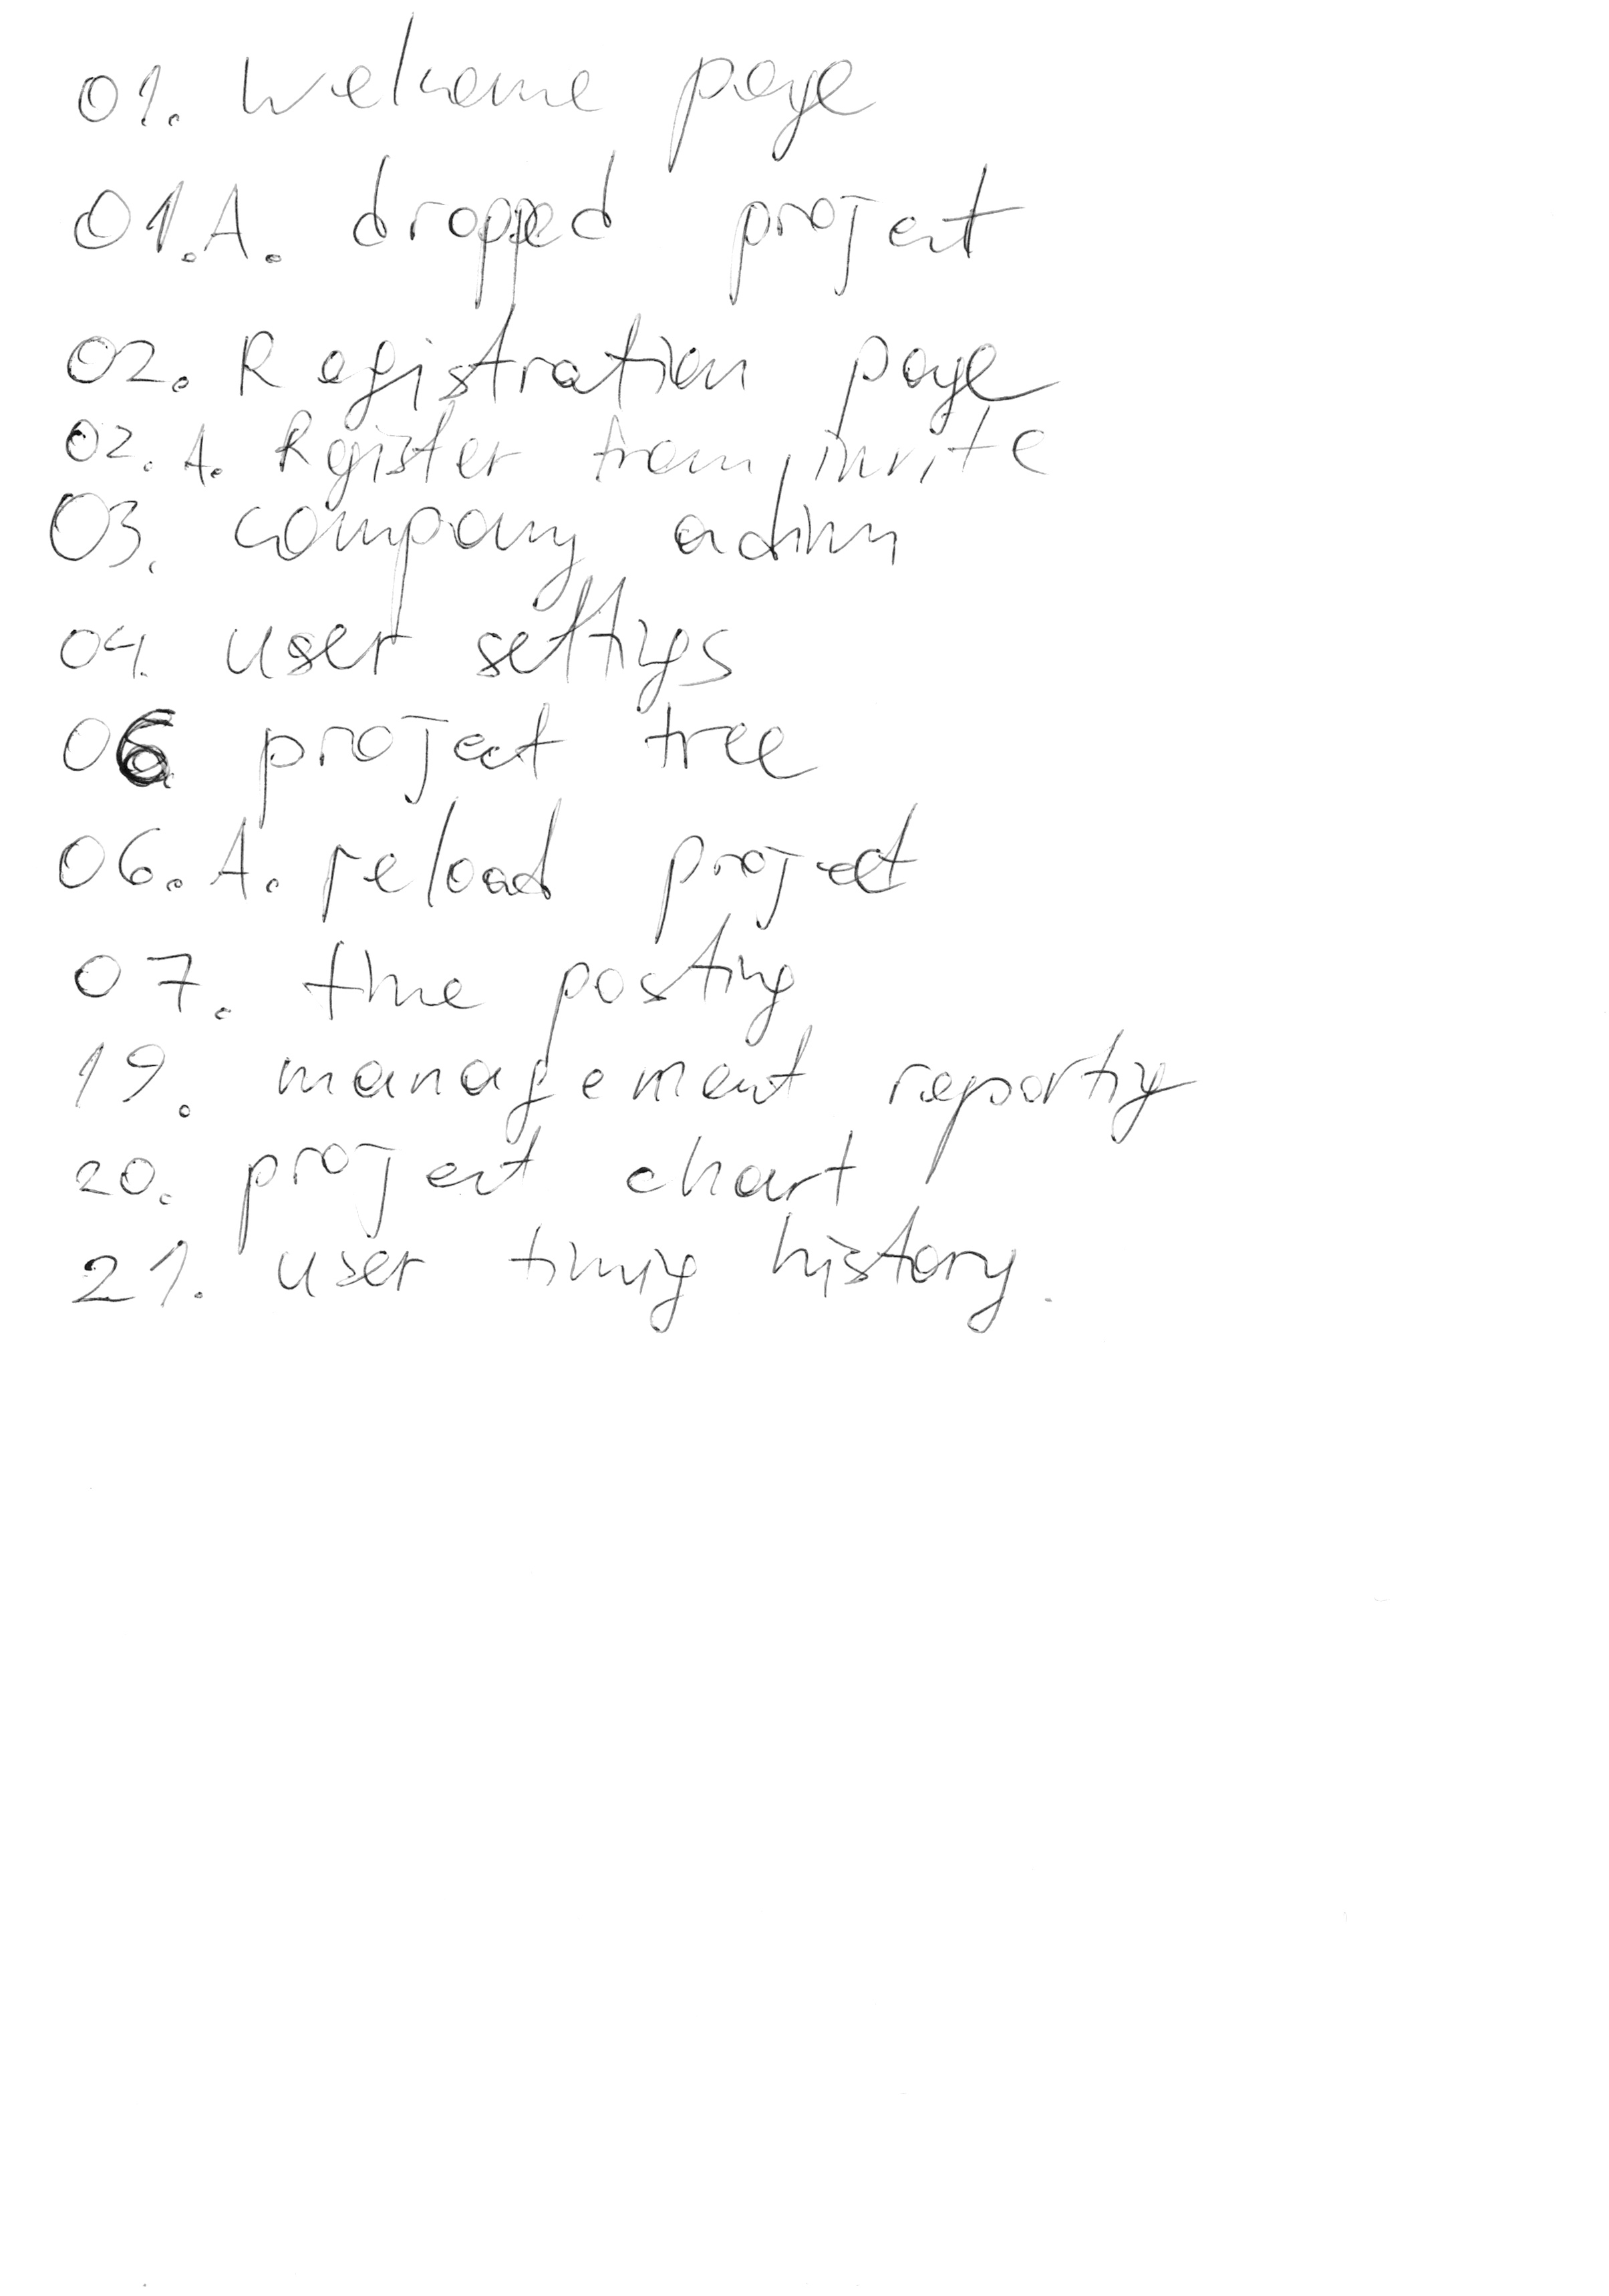 01. Welcome page
01.A. dropped project
02. Registration page
02.A. Register from invite
03. company admin
04. user settings
06 project tree
06.A. reload project
07. time posting
19. management reporting
20. project chart
21. user timing history.